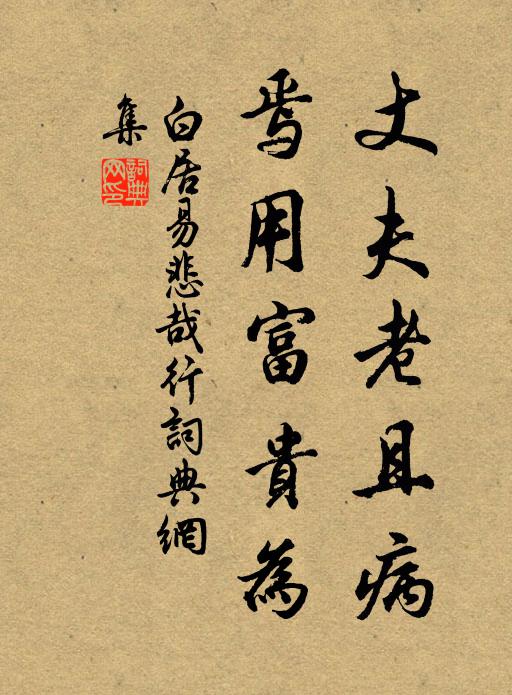 丈夫老且病
焉用富貴為
白居易悲哉行詞典網
集
詞典
网印